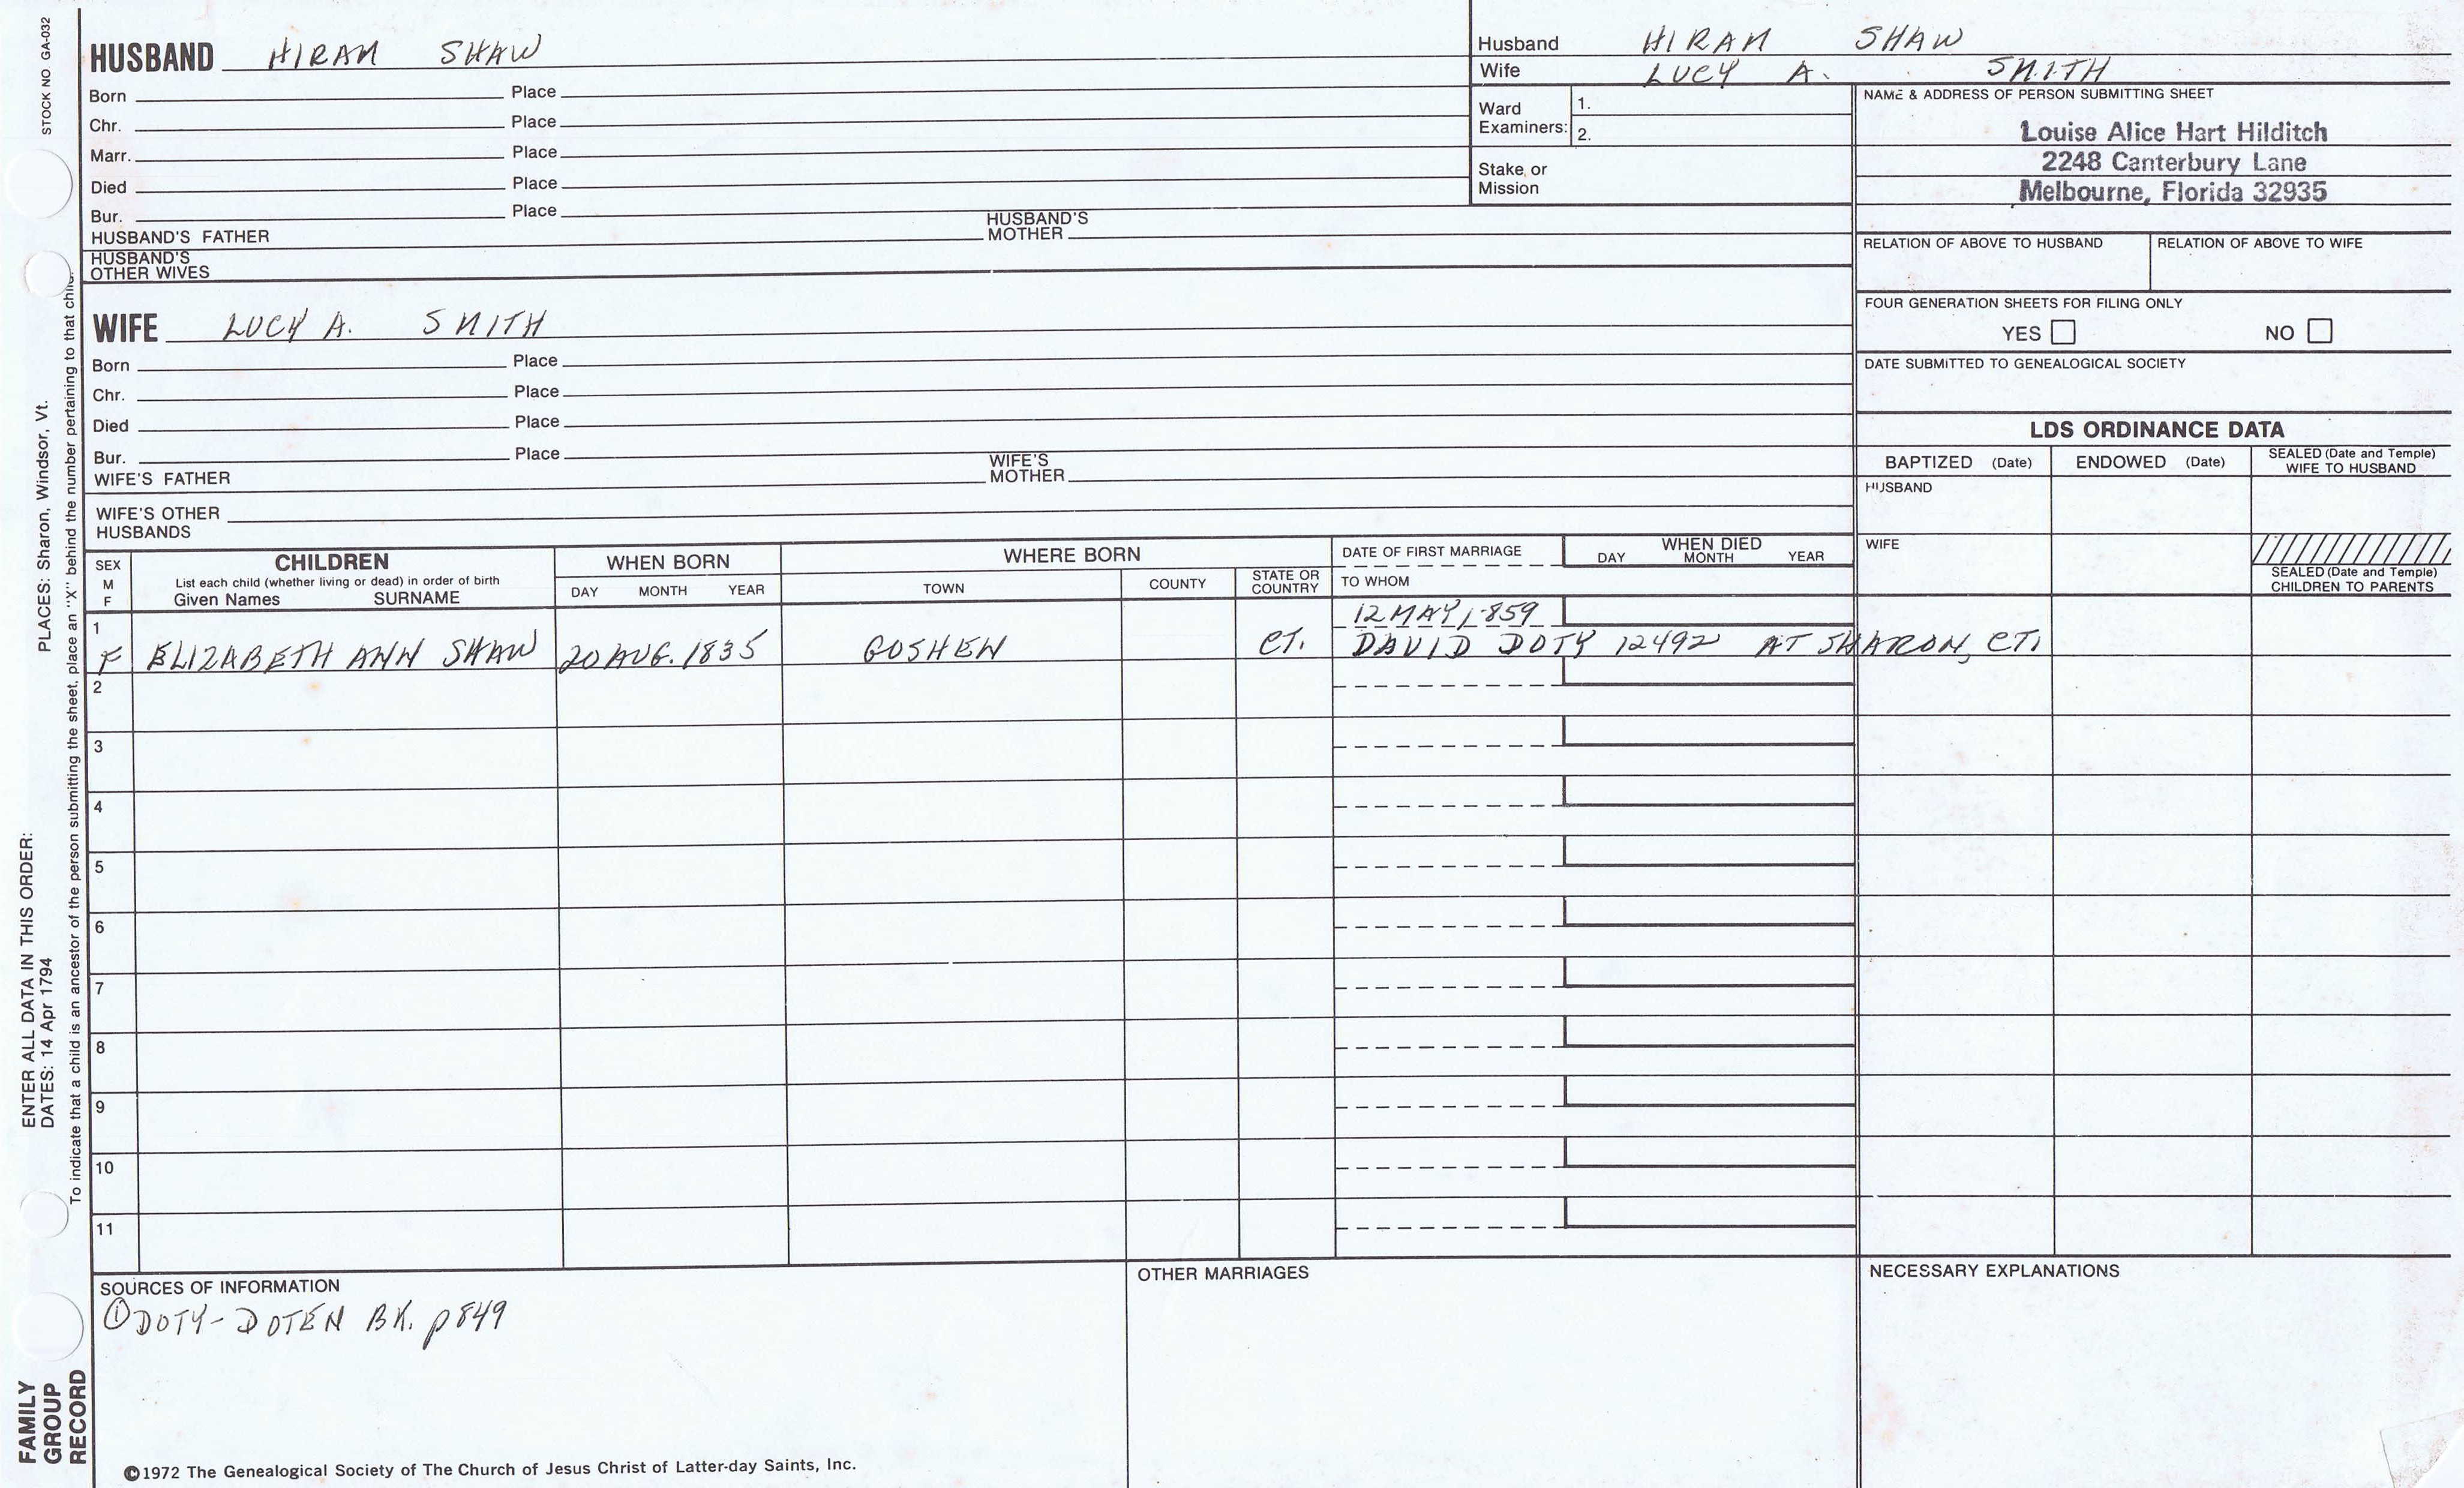 STOCK NO GA-032
HUSBAND HIRAM SHAW
Born Place
Chr. Place
Marr. Place
Died Place
Bur. Place
HUSBAND'S FATHER HUSBAND'S MOTHER
HUSBAND'S OTHER WIVES
Husband HIRAM SHAW
Wife LUCY A. SMITH
Ward Examiners: 1.
2.
Stake or Mission
NAME & ADDRESS OF PERSON SUBMITTING SHEET
Louise Alice Hart Hilditch
2248 Canterbury Lane
Melbourne, Florida 32935
RELATION OF ABOVE TO HUSBAND RELATION OF ABOVE TO WIFE
FOUR GENERATION SHEETS FOR FILING ONLY
YES NO
DATE SUBMITTED TO GENEALOGICAL SOCIETY
WIFE LUCY A. SMITH
Born Place
Chr. Place
Died Place
Bur. Place
WIFE'S FATHER WIFE'S MOTHER
WIFE'S OTHER HUSBANDS
LDS ORDINANCE DATA
BAPTIZED (Date) ENDOWED (Date) SEALED (Date and Temple) WIFE TO HUSBAND
HUSBAND
WIFE
SEALED (Date and Temple) CHILDREN TO PARENTS
SEX M F
CHILDREN
List each child (whether living or dead) in order of birth
Given Names SURNAME
WHEN BORN
DAY MONTH YEAR
WHERE BORN
TOWN COUNTY STATE OR COUNTRY
DATE OF FIRST MARRIAGE
TO WHOM
WHEN DIED
DAY MONTH YEAR
1 12 MAY 1859
F ELIZABETH ANN SHAW 20 AUG. 1835 GOSHEN CT. DAVID DOTY 12492 AT SHARON, CT.
2
3
4
5
6
7
8
9
10
11
SOURCES OF INFORMATION
① DOTY-DOTEN BK. p849
OTHER MARRIAGES
NECESSARY EXPLANATIONS
©1972 The Genealogical Society of The Church of Jesus Christ of Latter-day Saints, Inc.
FAMILY GROUP RECORD
ENTER ALL DATA IN THIS ORDER:
DATES: 14 Apr 1794 PLACES: Sharon, Windsor, Vt.
To indicate that a child is an ancestor of the person submitting the sheet, place an "X" behind the number pertaining to that child.